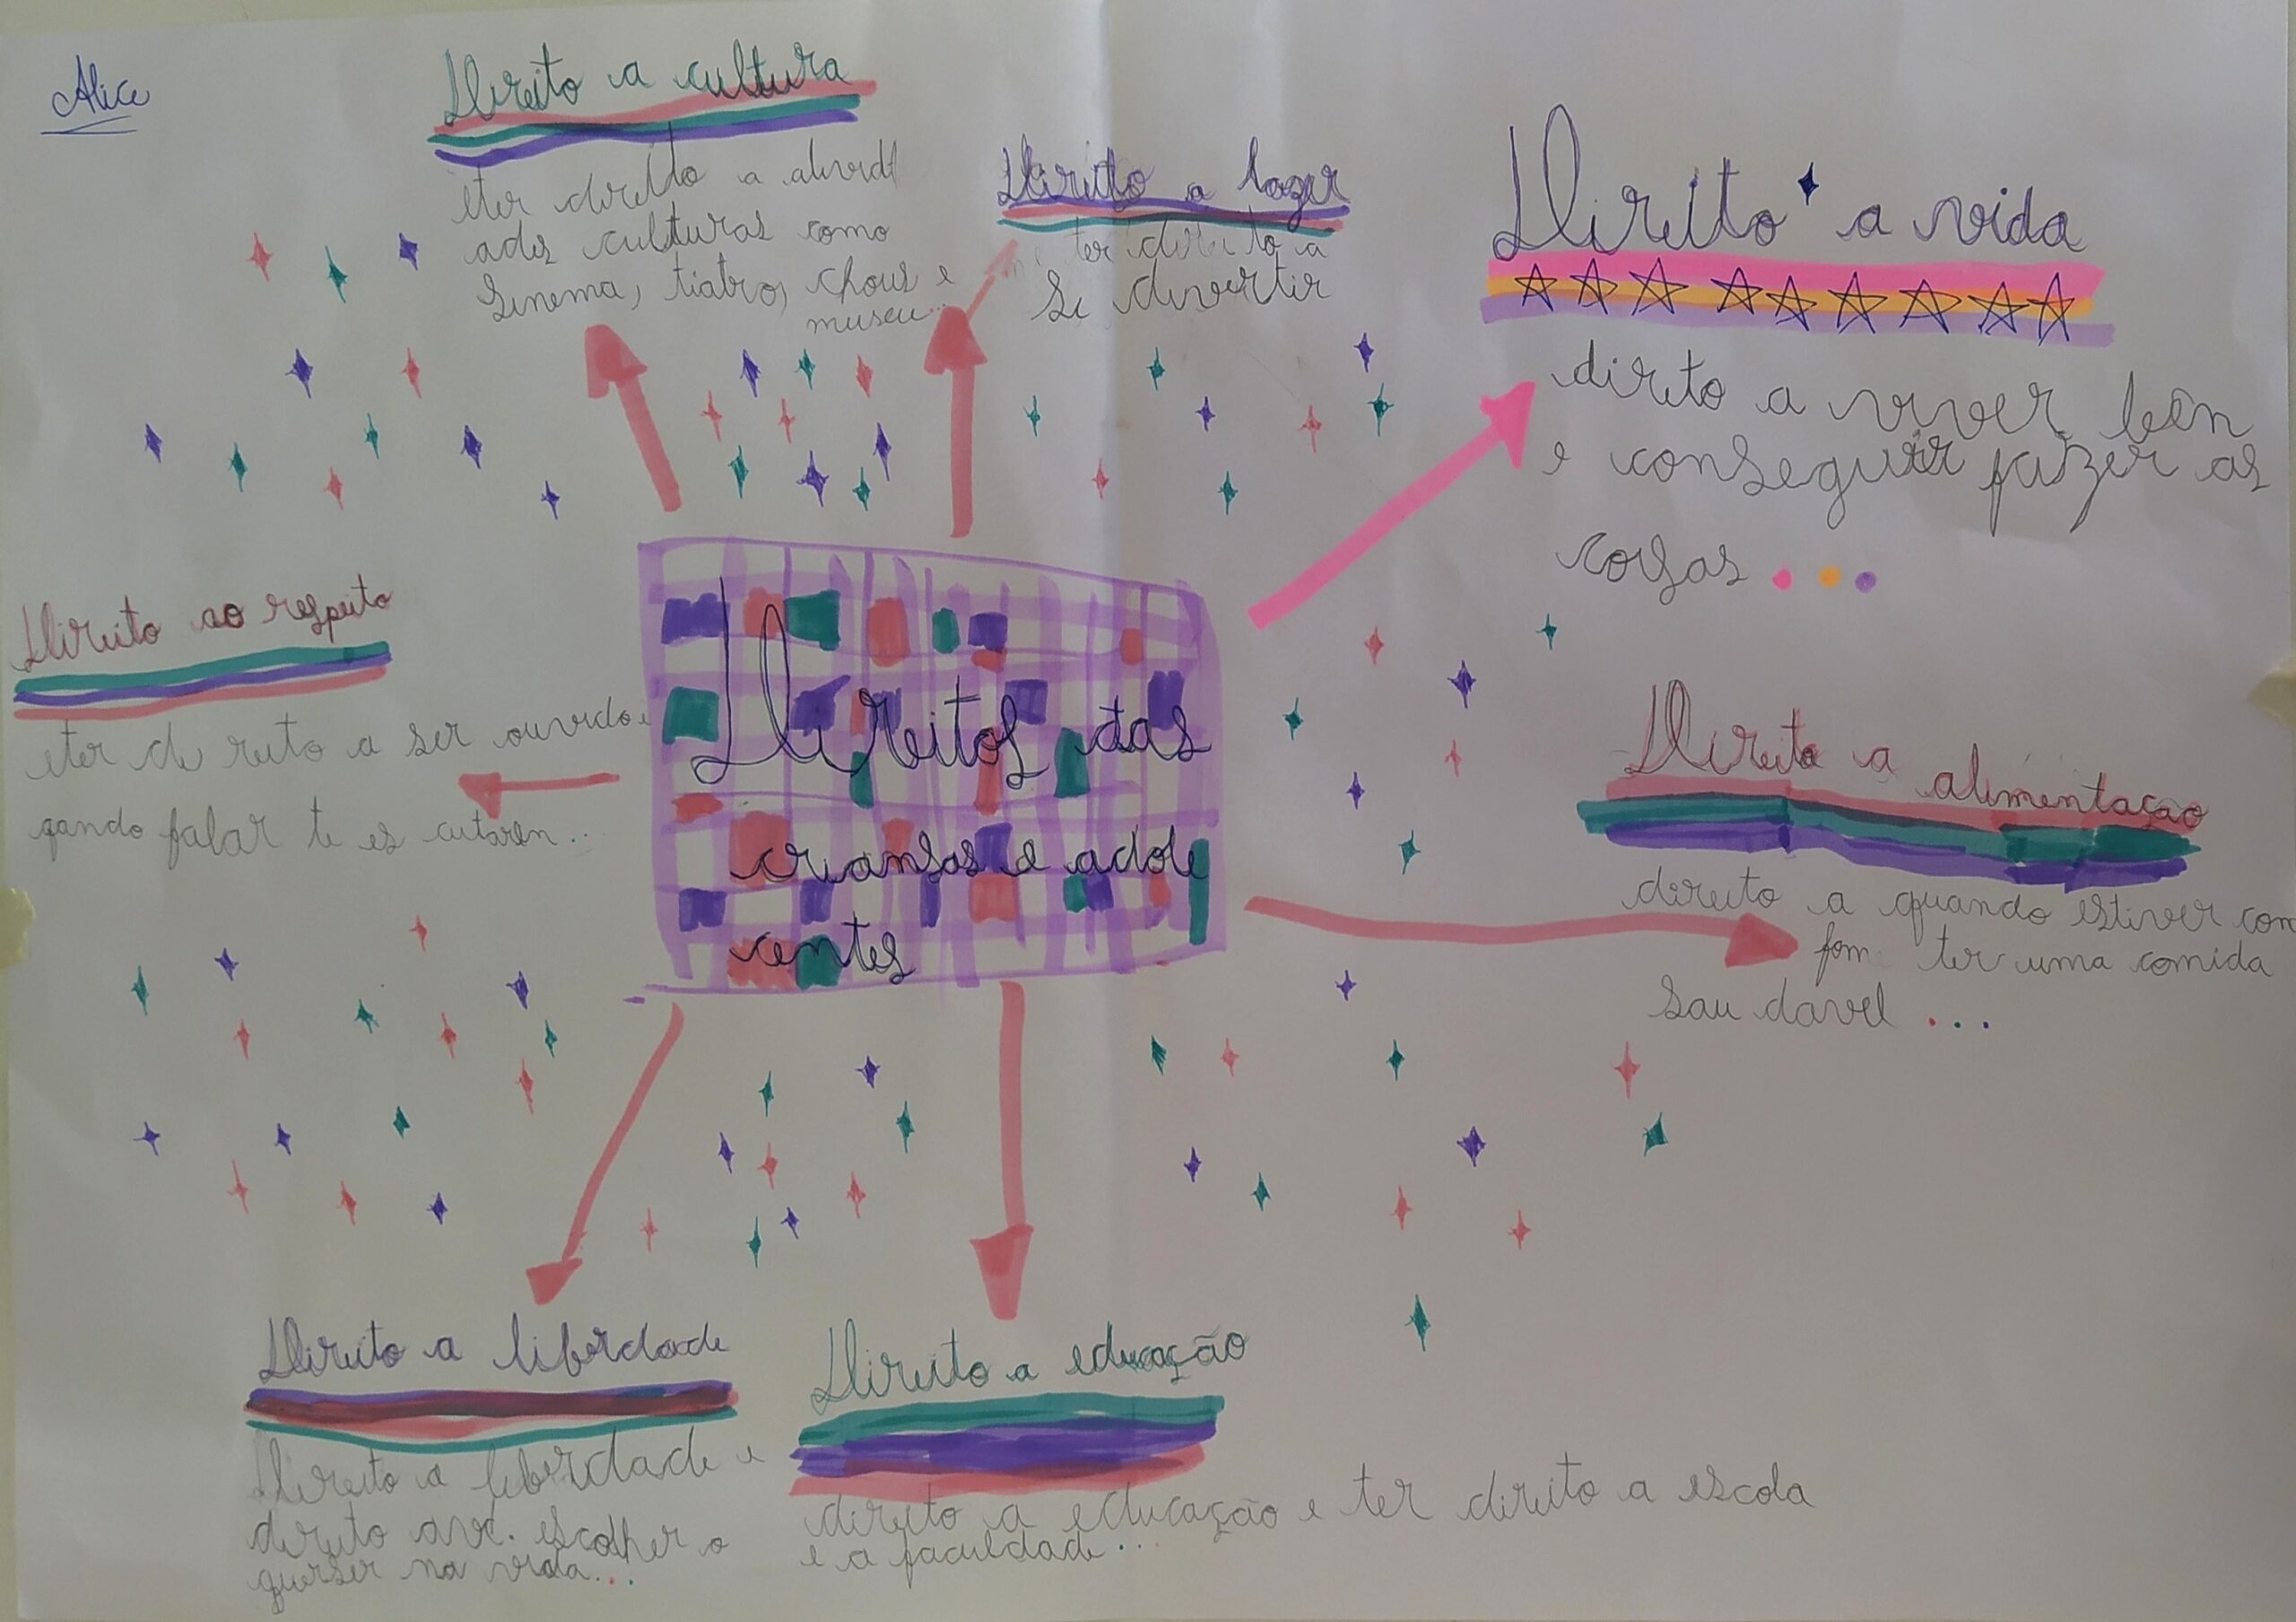 Alice
Direito a cultura
eter direito a atividad
ades culturas como
Sinema, tiatro, chous e
museu...
Direito a lazer
ter direito a
se divertir
Direito a vida
direto a viver bên
e conseguir fazer as
coisas ...
Direito ao respeito
eter di reito a ser ouvido e
qando falar te es cutaren...
Direitos das
criansas e adole
centes
Direito a alimentação
direito a quando estiver com
fom ter uma comida
sau davel ...
Direito a liberdade
Direito a liberdade e
direito escolher o
querser na vida...
Direito a educação
direito a educação e ter direito a escola
e a faculdade...